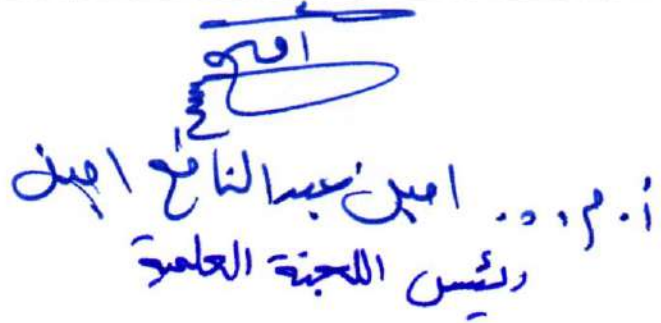 أ.م.د. امين عبدالنافع امين
رئيس اللجنة العلمية